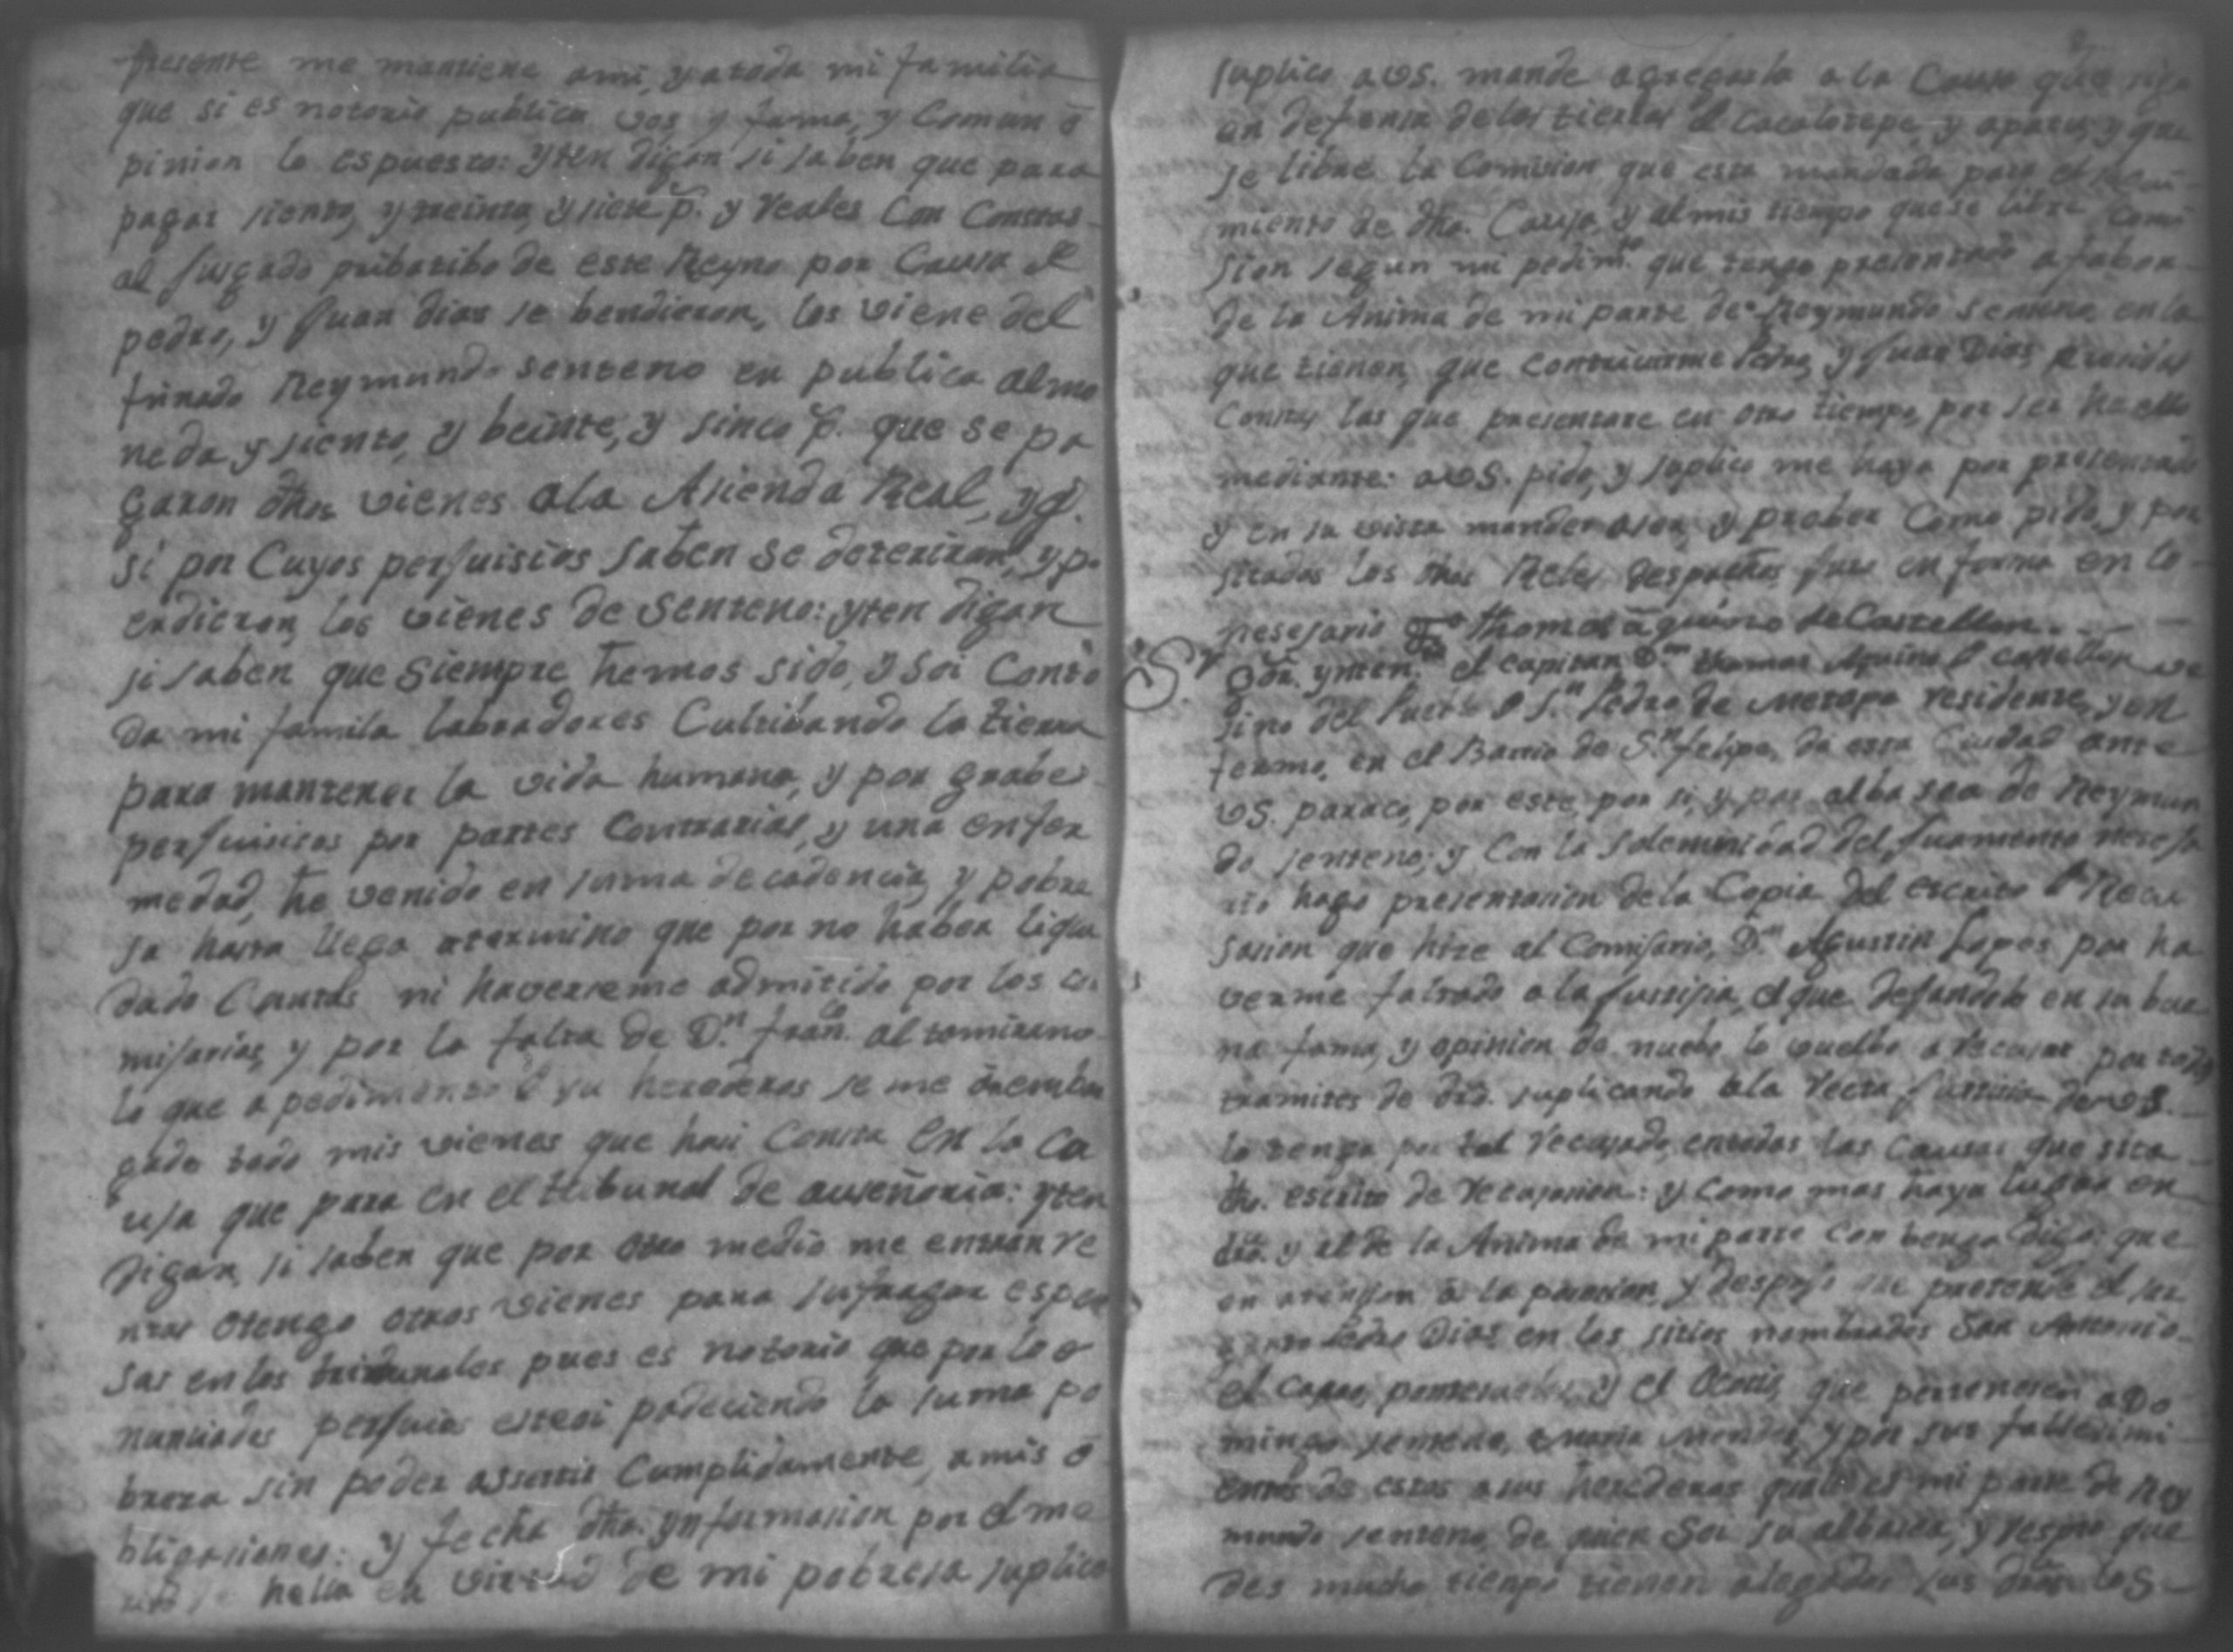 presente me mantiene ami, yatoda mi familia
que si es notorio publica vos y fama, y Comun o
pinion lo espuesto: yten digan si saben que para
pagar siento, y treinta, y siete p.s y reales Con Constas
al Jusgado pribatibo de este Reyno por Causa de
pedro, y Juan dias se bendieron, los viene del
finado Reymundo senteno en publica almo
neda y siento, y beinte, y sinco p.s que se pa
garon dhos vienes ala Asienda Real, y q.e
si por Cuyos perjuisios saben se deterioran, y p
erdieron los vienes de Senteno: yten digan
si saben que siempre hemos sido, y soi Conto
da mi famila labradores Cultibando la tierra
para mantener la vida humana, y por grabes
perjuisios por partes Contrarias, y una enfer
medad, he venido en suma decadencia, y pobre
sa hasta llega atermino que por no haber liqui
dado Cuentas ni haverseme admitido por los co
misarios, y por la falta de D.n fran.co altamirano
lo que a pedimento de su herederos se me a embar
gado todo mis vienes que haci Consta en la Ca
usa que para en el tribunal de auseñoria: yten
digan, si saben que por otro medio me entran re
ntas otengo otros vienes para sufragar espen
sas en los tribunales pues es notorio que por los
nunciados perjuisios estoi padeciendo la suma po
breza sin poder assistir Cumplidamente, amis o
bligaciones: y fecha dha. ynformasion por el me
halla en virtud de mi pobresa suplico
suplico avs. mande agregarla a la Causa que sigo
en defensa de las tierras de Cacalotepe, y y que
se libre la Comision que esta mandada para el
miento de dha. Causa, y almis tiempo que se libre Comi
sion segun mi pedim.to que tengo presentado a fabor
de la Anima de mi parte de Reymundo senteno en la
que tienen, que Contribuirme Pedro, y Juan Dias,
Costas las que presentare en otro tiempo, por ser
mediante: avs. pido, y suplico me haya por presentado
y en su vista mander aser, y prober Como pido, y por
sitadas los dhas Reles despachos juro en forma en lo
nesesario thomas aquino de Castellon
S.r Gov. ynten.te el Capitan D.n thomas Aquino de Castellon ve
sino del Pueblo de S.n Pedro de metapa residente, y en
fermo, en el Barrio de S.n felipe, de esta Ciudad ante
vs. paraco, por este, por si, y por albasea de Reymun
do senteno; y Con la solemnidad del Juramento nesesa
rio hago presentasion dela Copia del escrito de Recu
sasion que hize al Comisario, D.n Agustin Lopes por ha
verme faltado ala justisia, el que dejandolo en su bue
na fama, y opinion de nuebo lo vuelbo a recusar por todos
tramites de dro. suplicando ala recta justisia de vs.
lo tenga por tal recusado, entodas las Causas que sita
dho. escrito de recusasion: y Como mas haya lugar en
dro. y al de la Anima de mi parte Conbenga digo: que
en atension a la y despojo que pretende el
Pedro Dias en los sitios nombrados San Antonio
el y el Ocote, que pertenesen a Do
mingo senteno, y por sus fallesimi
entos de estos asus herederos qual es mi parte de Rey
mundo senteno, de quien soi su albasea, y respto que
des mucho tiempo tienen alegados sus dros. los